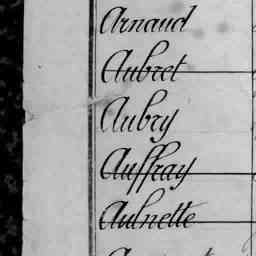 Arnaud
Aubret
Aubry
Auffray
Aulnette